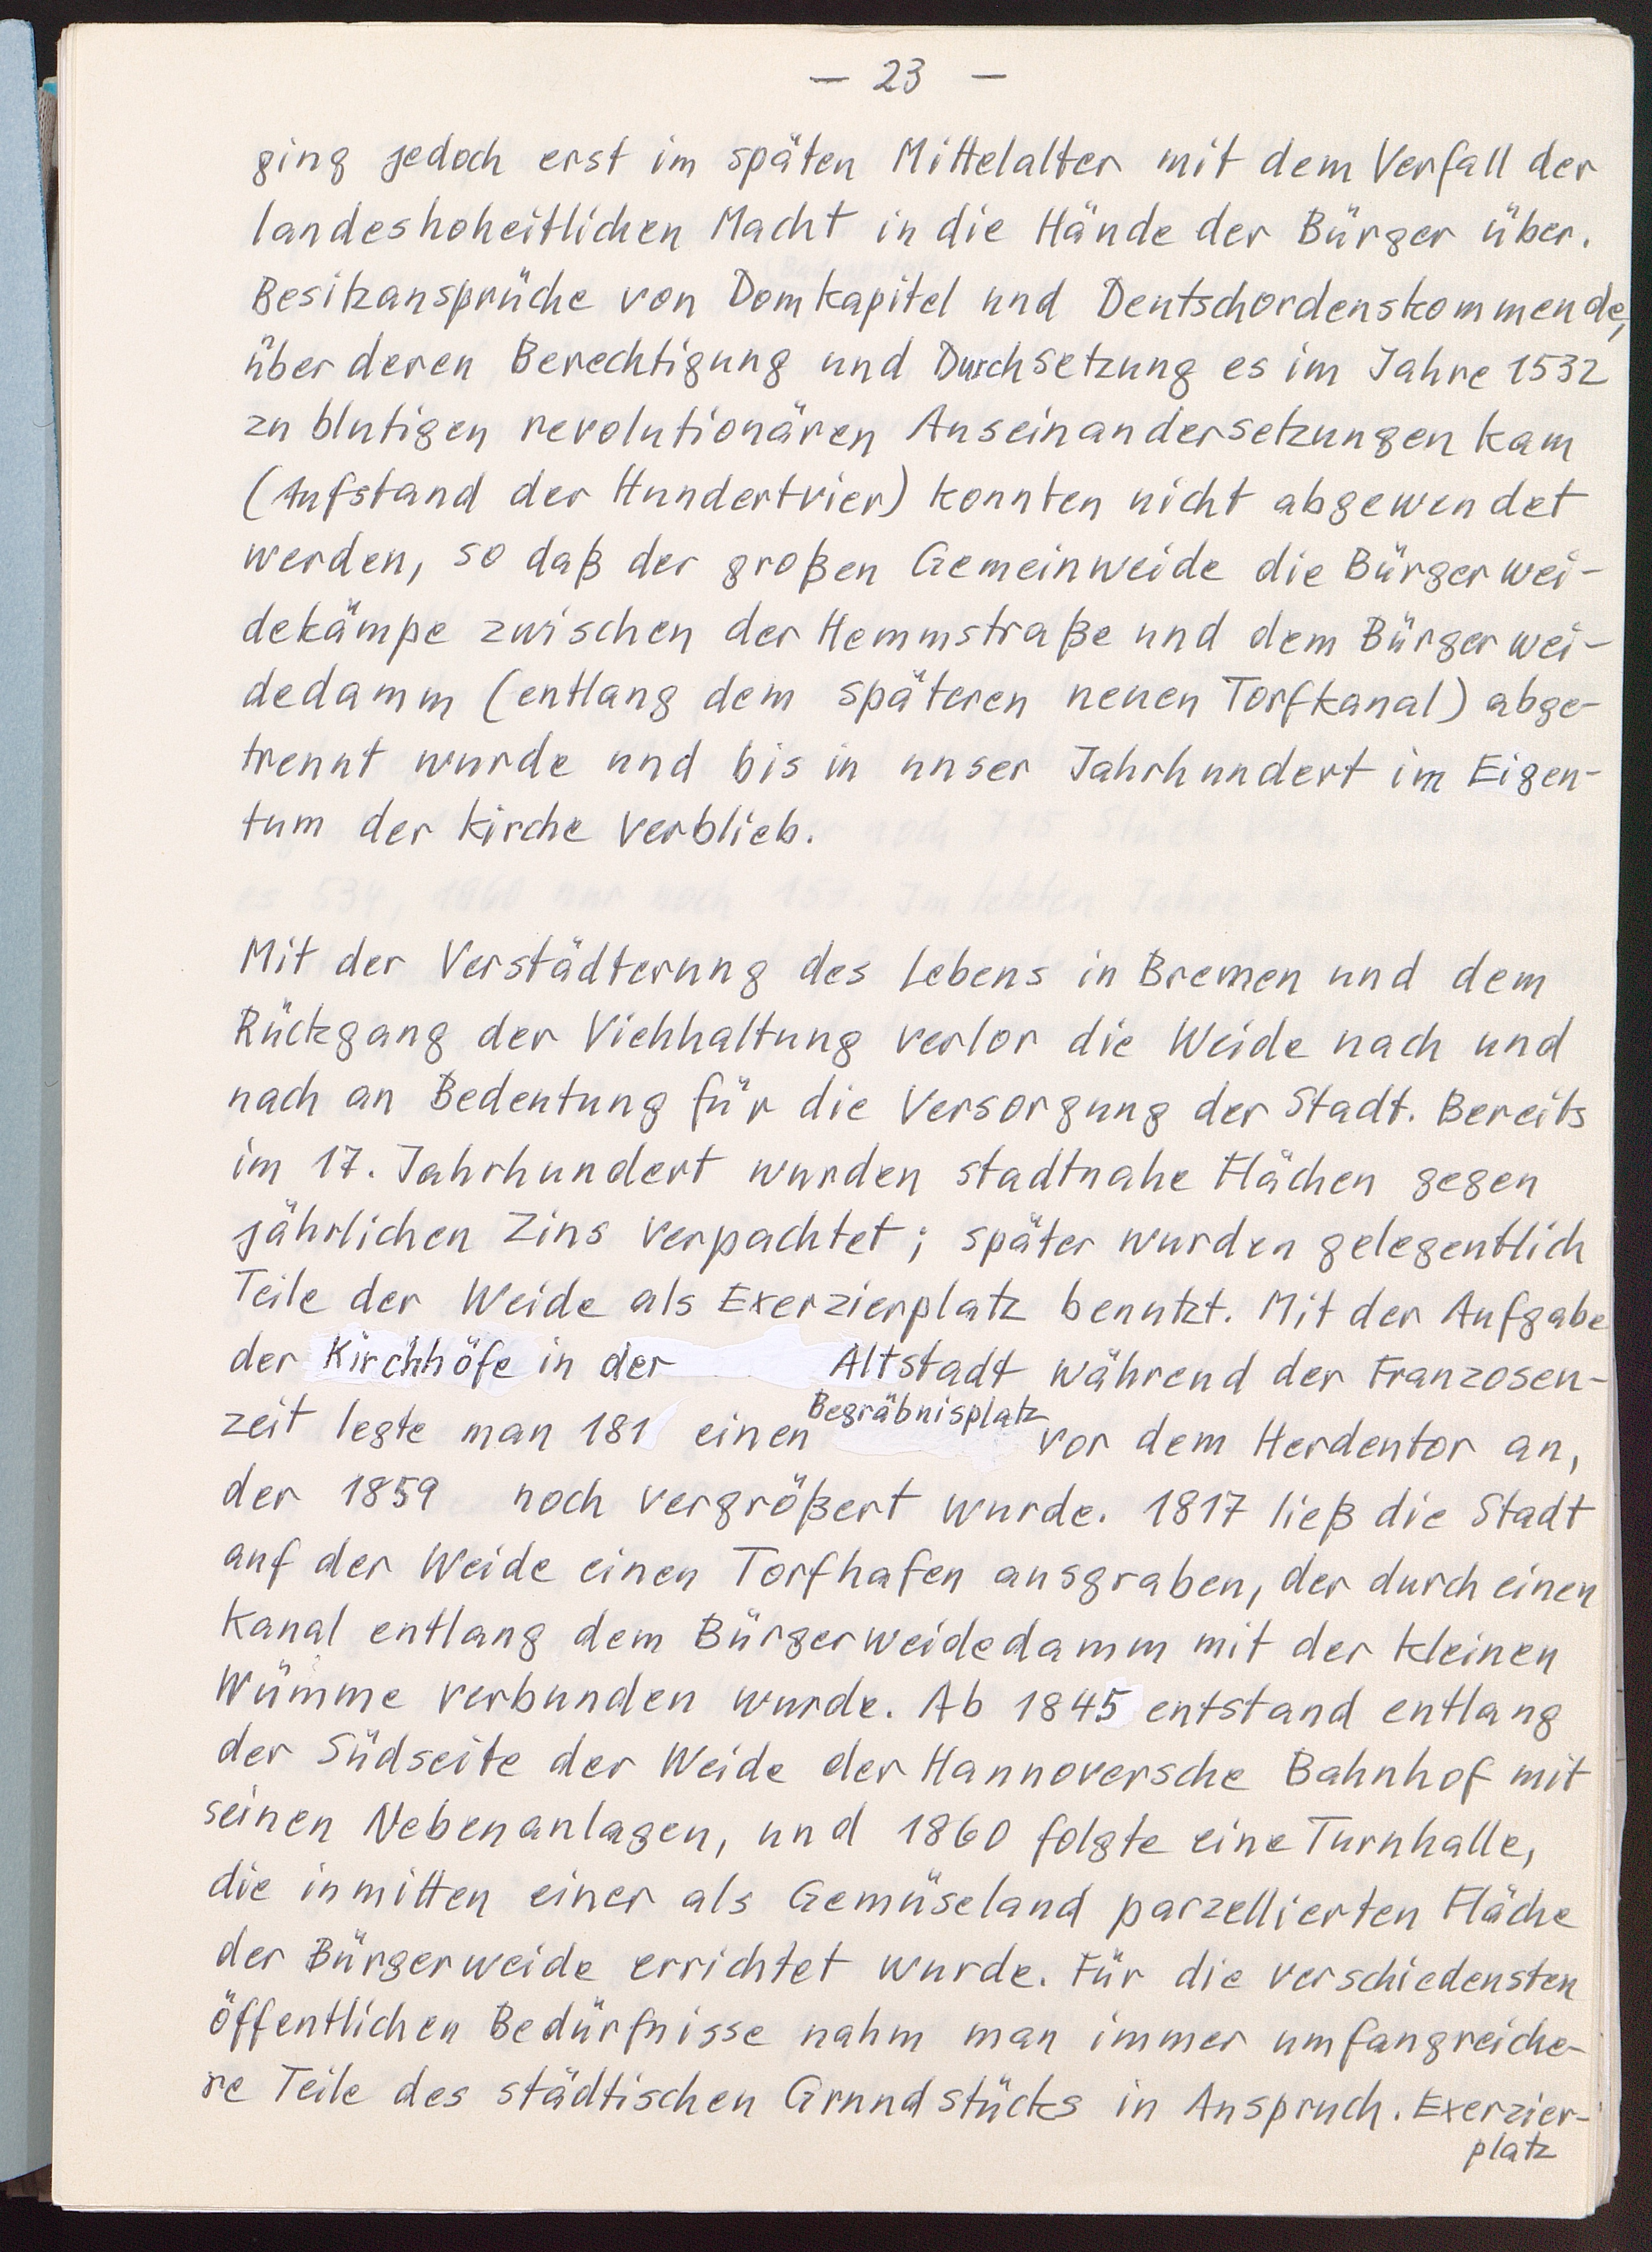 — 23 —
ging jedoch erst im späten Mittelalter mit dem Verfall der
landeshoheitlichen Macht in die Hände der Bürger über.
Besitzansprüche von Domkapitel und Deutschordenskommende,
über deren Berechtigung und Durchsetzung es im Jahre 1532
zu blutigen revolutionären Auseinandersetzungen kam
(Aufstand der Hundertvier) konnten nicht abgewendet
werden, so daß der großen Gemeinweide die Bürgerwei-
dekämpe zwischen der Hemmstraße und dem Bürgerwei-
dedamm (entlang dem späteren neuen Torfkanal) abge-
trennt wurde und bis in unser Jahrhundert im Eigen-
tum der Kirche verblieb.
Mit der Verstädterung des Lebens in Bremen und dem
Rückgang der Viehhaltung verlor die Weide nach und
nach an Bedeutung für die Versorgung der Stadt. Bereits
im 17. Jahrhundert wurden stadtnahe Flächen gegen
jährlichen Zins verpachtet; später wurden gelegentlich
Teile der Weide als Exerzierplatz benutzt. Mit der Aufgabe
der Kirchhöfe in der Altstadt während der Franzosen-
zeit legte man 181 einen Begräbnisplatz vor dem Herdentor an,
der 1859 noch vergrößert wurde. 1817 ließ die Stadt
auf der Weide einen Torfhafen ausgraben, der durch einen
Kanal entlang dem Bürgerweidedamm mit der kleinen
Wümme verbunden wurde. Ab 1845 entstand entlang
der Südseite der Weide der Hannoversche Bahnhof mit
seinen Nebenanlagen, und 1860 folgte eine Turnhalle,
die inmitten einer als Gemüseland parzellierten Fläche
der Bürgerweide errichtet wurde. Für die verschiedensten
öffentlichen Bedürfnisse nahm man immer umfangreiche-
re Teile des städtischen Grundstücks in Anspruch. Exerzier-
platz